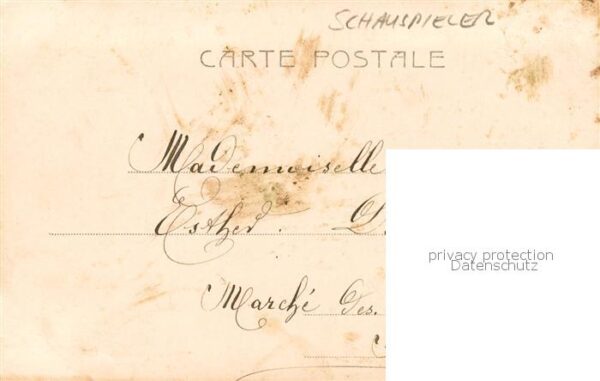 SCHAUSPIELER
CARTE POSTALE
Mademoiselle
Esther. D
Marché des.
privacy protection
Datenschutz